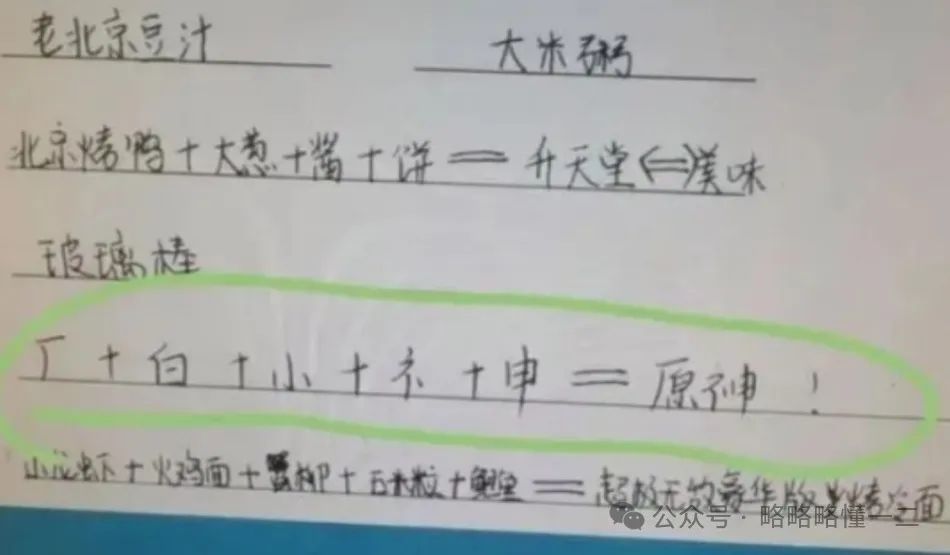 老北京豆汁 大米粥
北京烤鸭+大葱+酱+饼=升天堂⇔美味
玻璃棒
厂+白+小+礻+申=原神！
小龙虾+火鸡面+蟹柳+玉米粒+鲤鱼=超级无敌豪华版烤冷面
公众号·略略略懂一二